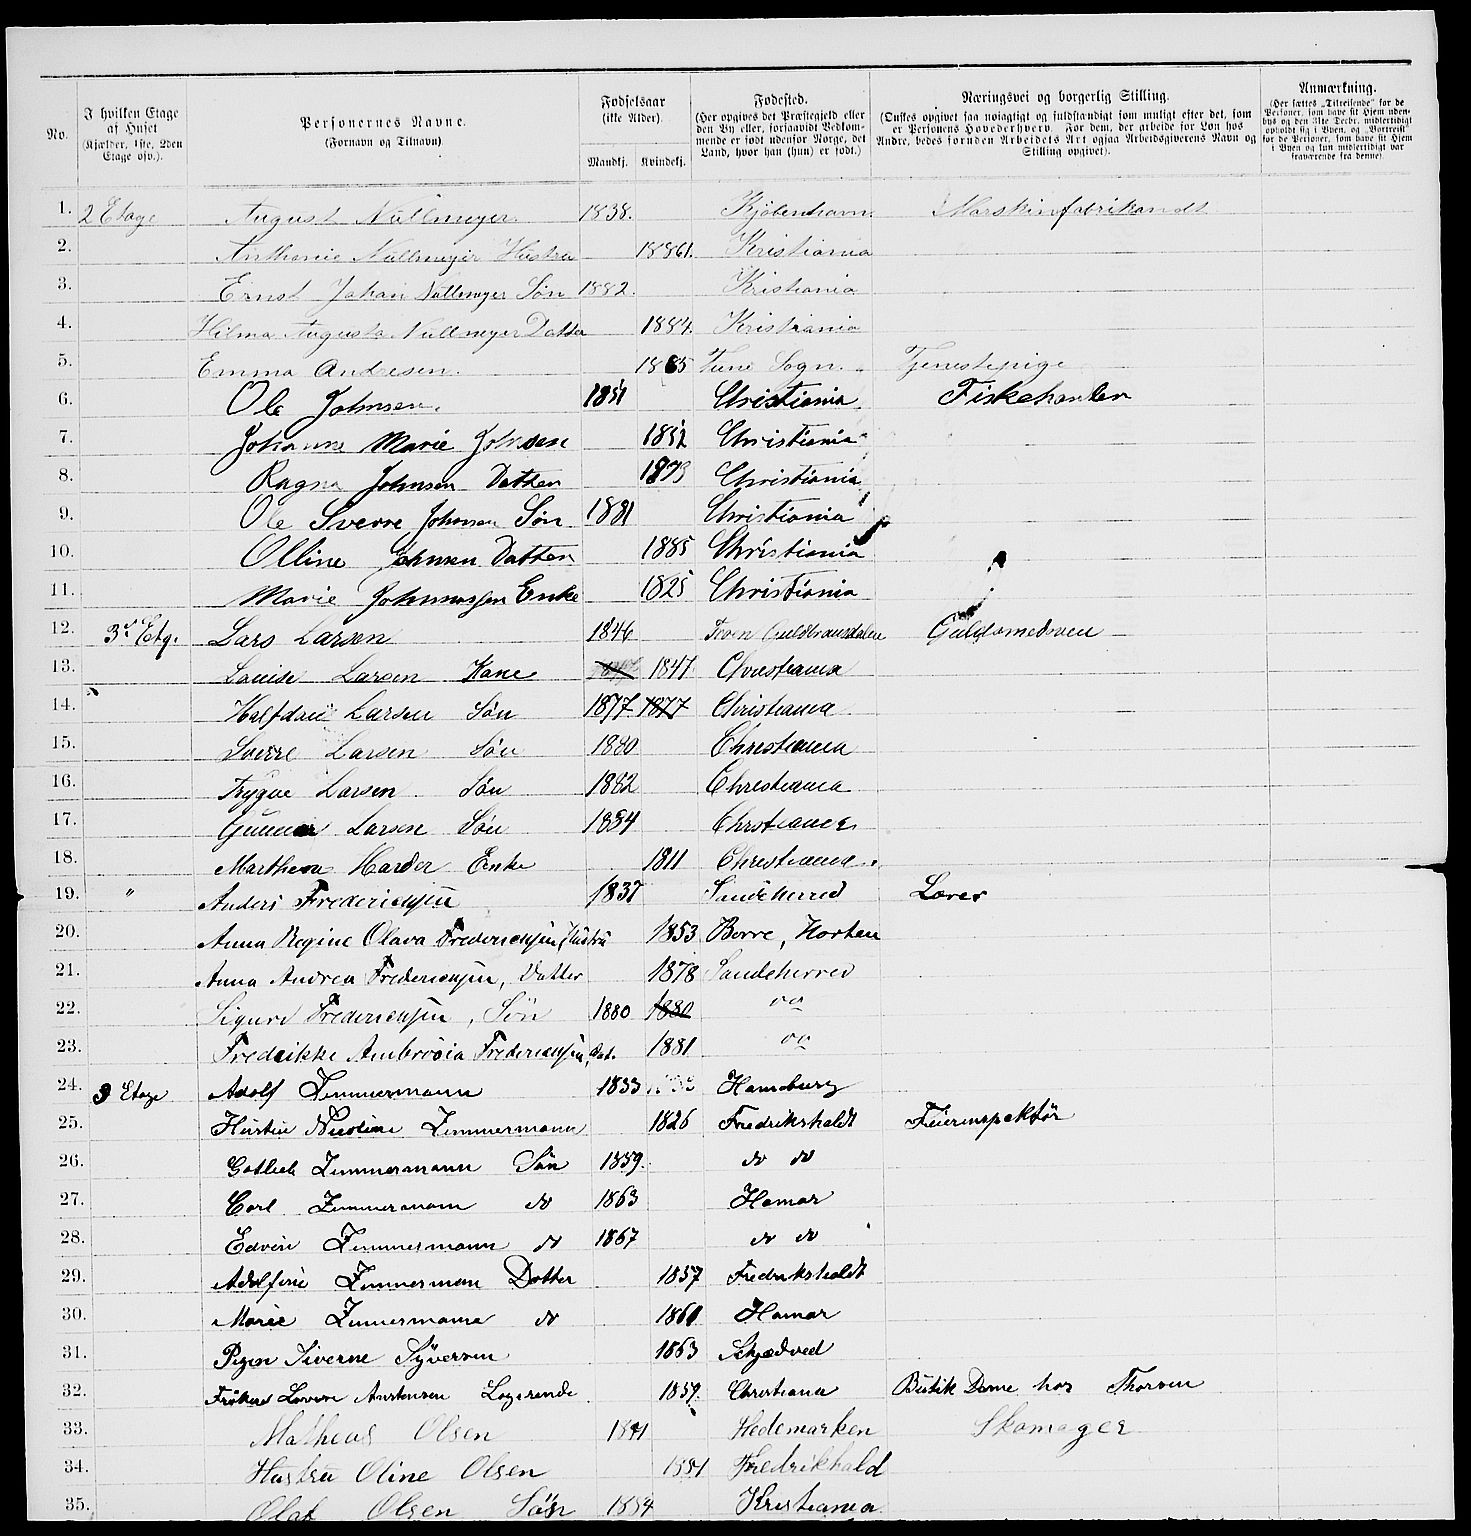 No. | I hvilken Etage af Huset (Kjælder, 1ste, 2den Etage osv.). | Personernes Navne. (Fornavn og Tilnavn) | Fødselsaar (ikke Alder). Mandkj. | Kvindekj. | Fødested. (Her opgives det Præstegjeld eller den By eller, forsaavidt Vedkommende er født udenfor Norge, det Land, hvor han (hun) er født.) | Næringsvei og borgerlig Stilling. (Ønskes opgivet saa nøiagtigt og fuldstændigt som muligt efter det, som er Personens Hovederhverv. For dem, der arbeide for Løn hos Andre, bedes foruden Arbeidets Art ogsaa Arbeidsgiverens Navn og Stilling opgivet). | Anmærkning. (Her sættes „Tilreisende" for de Personer, som have sit Hjem udenbys og den 31te Decbr. midlertidigt opholdt sig i Byen, og „Bortreist" for de Personer, som have sit Hjem i Byen og kun midlertidigt var fraværende fra denne).
1. 2 Etage August Nullmeyer. 1838. Kjøbenhavn. Marskinfabrikandt
2. Anthonie Nullmeyer Hustru 1861. Kristiania
3. Ernst Johan Nullmeyer Søn 1882. Kristiania
4. Hilma Augusta Nullmeyer Datter 1884. Kristiania
5. Emma Andresen. 1865 Tune Sogn. Tjenestepige
6. Ole Johnsen. 1851 Christiania Fiskehanler
7. Johanne Marie Johnsen 1852 Christiania
8. Ragna Johnsen Datter 1873 Christiania
9. Ole Sverre Johnsen Søn 1881 Christiania
10. Olline Johnsen Datter 1885 Christiania
11. Marie Johnnassen Enke 1825 Christiania
12. 3die Etg. Lars Larsen 1846 Guldbrandsdalen Guldsmedsven
13. Louise Larsen Kone 1847 Christiania
14. Halfdan Larsen Søn 1877 1877 Christiania
15. Sverre Larsen Søn 1880 Christiania
16. Trygve Larsen Søn 1882 Christiania
17. Gunnar Larsen Søn 1884 Christiania
18. Marthea Harder Enke 1811 Christiania
19. " Anders Fredericksen 1837 Sandeherred Lærer
20. Anna Regine Olava Fredericksen, Hustru 1853 Borre, Horten
21. Anna Andrea Fredericksen, Datter 1878 Sandeherred
22. Sigurd Fredericksen, Søn 1880 1880 do
23. Fredrikke Ambrosia Fredericksen, dat. 1881 do
24. 3 Etage Adolf Zimmermann 1833 Hamburg
25. Hustru Nicoline Zimmermann 1826 Fredrikshaldt Feierinspektør
26. Gotlieb Zimmermann Søn 1859. do do
27. Carl Zimmermann do 1863 Hamar
28. Edvin Zimmermann do 1867 do do
29. Adolfine Zimmerman Datter 1857 Fredrikshaldt
30. Marie Zimmermann do 1860 Hamar
31. Pigen Siverne Syversen 1863 Schjedved
32. Frøken Lovise Austensen Logerende 1859. Christiania Butik Dame hos Thorsen
33. Matheas Olsen 1841 Hedemarken Skomager
34. Hustru Oline Olsen 1851 Fredrikhald
35. Olaf Olsen Søn 1884 Kristiania